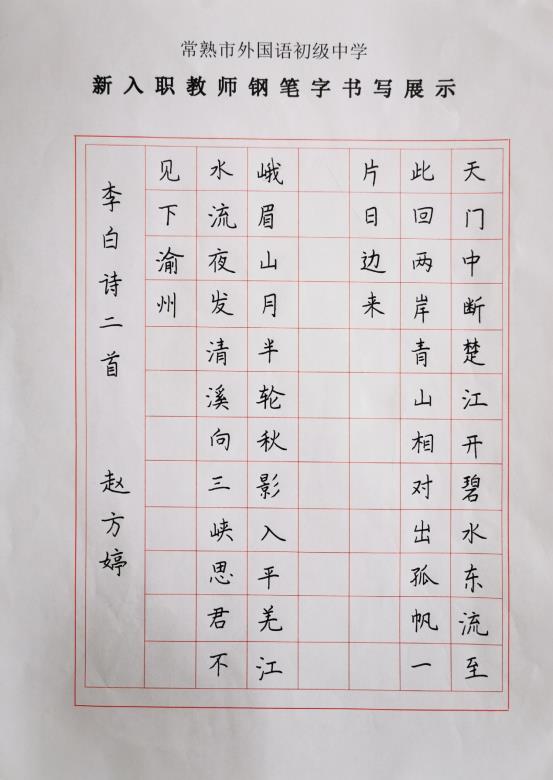 常熟市外国语初级中学
新入职教师钢笔字书写展示
天门中断楚江开碧水东流至
此回两岸青山相对出孤帆一
片日边来
峨眉山月半轮秋影入平羌江
水流夜发清溪向三峡思君不
见下渝州
李白诗二首 赵方婷